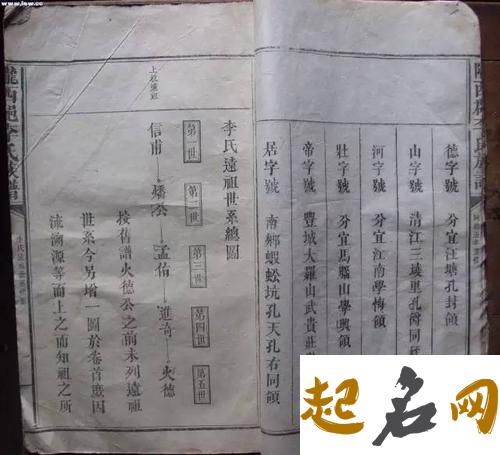 德字號 分宜江塘孔封領
山字號 清江三堎里孔衡同
河字號 分宜江南學傅領
壯字號 分宜馬嶺山學興領
帝字號 豐城大羅山武貴莊世
居字號 南鄉蝦蚣坑孔天孔右同領
李氏遠祖世系總圖
第一世 第二世 第三世 第四世 第五世
信甫 燔公 孟佑 進奇 火德
按舊譜火德公之前未列遠祖
世系今另增一圖於卷首意因
流溯源等而上之而知祖之所
起名网